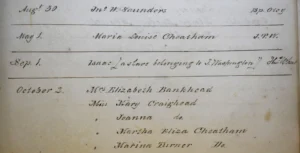 Augt 30 Jno. W. Saunders Bp. Otey
May 1. Maria Louise Cheatham J.T.W.
Sep. 1. Isaac "a slave belonging to J. Washington"
October 2. Mrs Elizabeth Bankhead
Miss Mary Craighead
" Joanna do
" Martha Eliza Cheatham
" Marina Turner Do